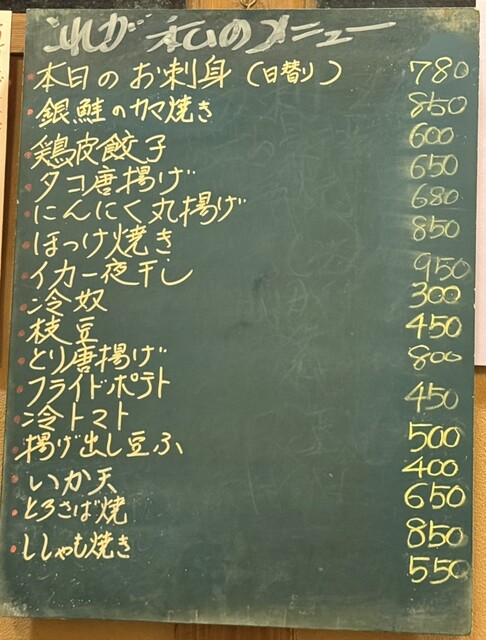 これが私のメニュー
本日のお刺身(日替り) 780
銀鮭のカマ焼き 850
鶏皮餃子 600
タコ唐揚げ 650
にんにく丸揚げ 680
ほっけ焼き 850
イカ一夜干し 950
冷奴 300
枝豆 450
とり唐揚げ 800
フライドポテト 450
冷トマト 500
揚げ出し豆ふ 400
いか天 650
とろさば焼 850
ししゃも焼き 550